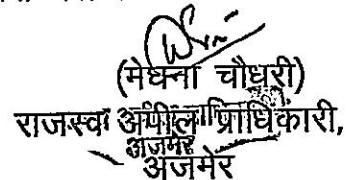 (मेघना चौधरी)
राजस्व अपील प्राधिकारी,
अजमेर
अजमेर